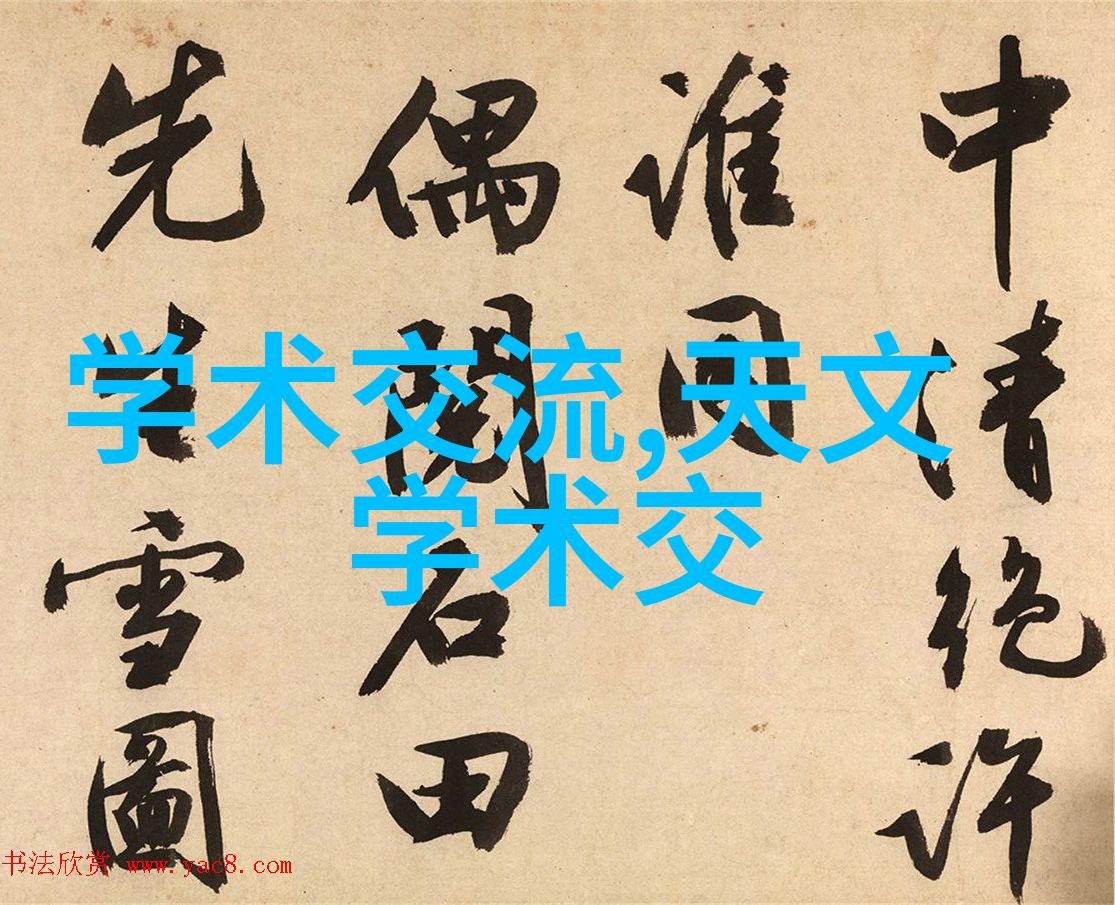 中清絶許
誰同
偶閱石田
先生雪圖
学术交流,天文
学术交
书法欣赏 www.yac8.com